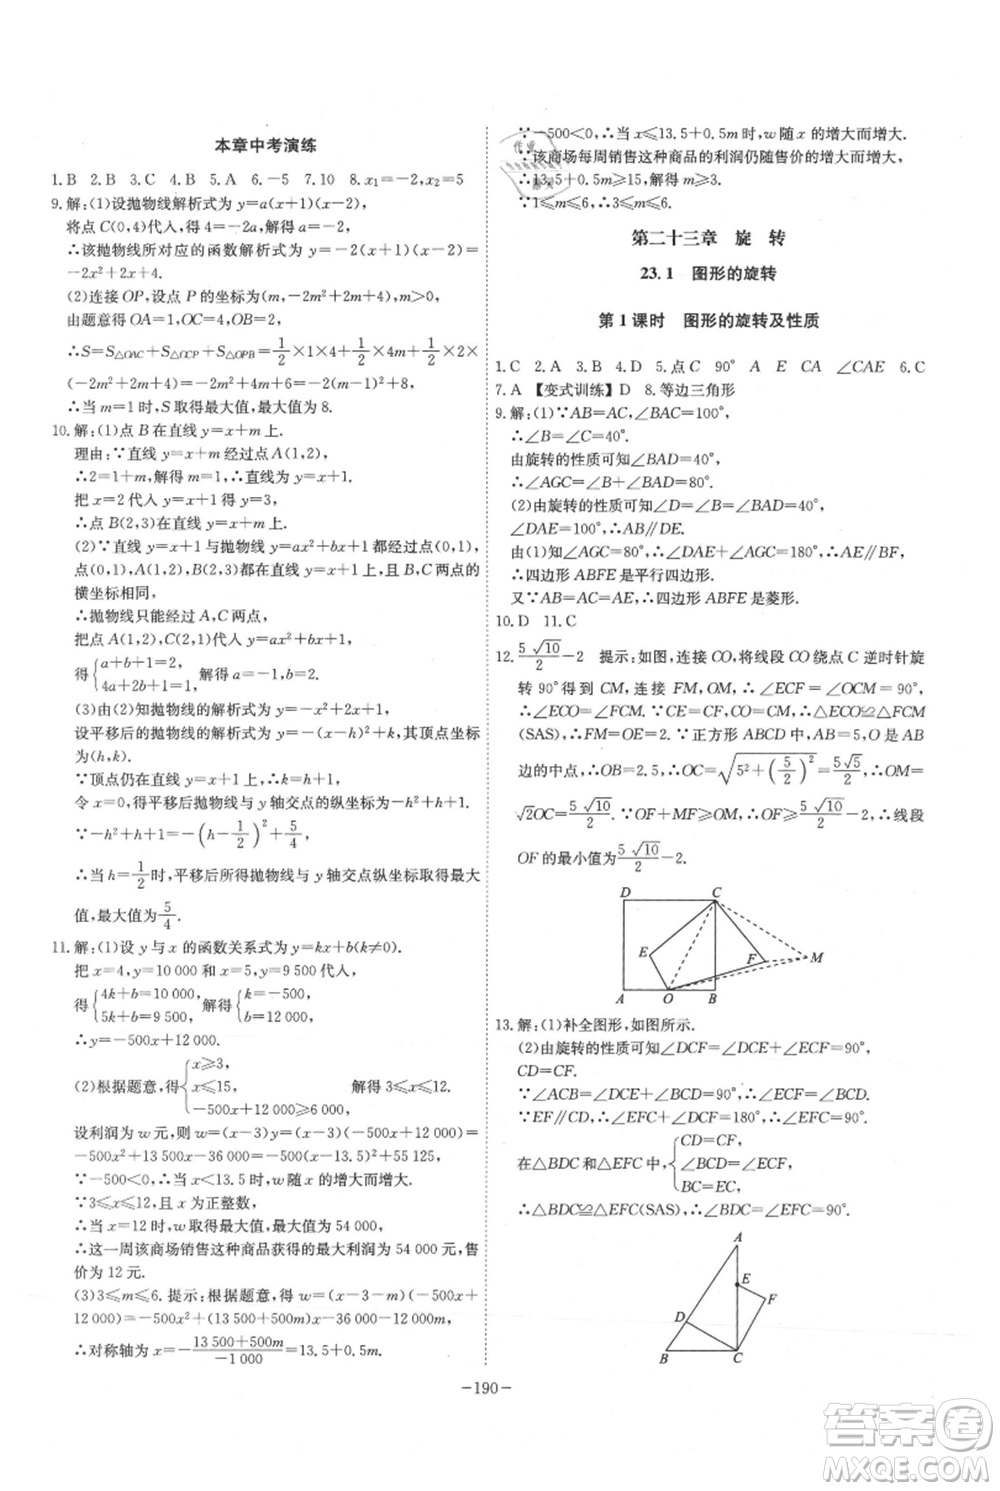 本章中考演练
1.B 2.B 3.C 4.B 5.A 6.-5 7.10 8.x₁=-2,x₂=5
9.解:(1)设抛物线解析式为 y=a(x+1)(x-2),
将点 C(0,4)代入,得 4=-2a,解得 a=-2.
∴该抛物线所对应的函数解析式为 y=-2(x+1)(x-2)=
-2x²+2x+4.
(2)连接 OP,设点 P 的坐标为(m,-2m²+2m+4),m>0.
由题意得 OA=1,OC=4,OB=2,
∴S=S△OAC+S△OCP+S△OPB=1/2×1×4+1/2×4m+1/2×2×
(-2m²+2m+4)=-2m²+4m+6=-2(m-1)²+8,
∴当 m=1 时,S 取得最大值,最大值为 8.
10.解:(1)点 B 在直线 y=x+m 上.
理由:∵直线 y=x+m 经过点 A(1,2),
∴2=1+m,解得 m=1,∴直线为 y=x+1.
把 x=2 代入 y=x+1 得 y=3,
∴点 B(2,3)在直线 y=x+m 上.
(2)∵直线 y=x+1 与抛物线 y=ax²+bx+1 都经过点(0,1),
点(0,1),A(1,2),B(2,3)在直线 y=x+1 上,且 B,C 两点的
横坐标相同,
∴抛物线只能经过 A,C 两点,
把点 A(1,2),C(2,1)代入 y=ax²+bx+1,
得{a+b+1=2, 4a+2b+1=1, 解得 a=-1,b=2.
(3)由(2)知抛物线的解析式为 y=-x²+2x+1,
设平移后的抛物线的解析式为 y=-(x-h)²+k,其顶点坐标为
(h,k).
∵顶点仍在直线 y=x+1 上,∴k=h+1.
令 x=0,得到平移后抛物线与 y 轴交点的纵坐标为-h²+h+1.
∵-h²+h+1=-(h-1/2)²+5/4,
∴当 h=1/2时,平移后所得抛物线与 y 轴交点纵坐标取得最大
值,最大值为5/4.
11.解:(1)设 y 与 x 的函数关系式为 y=kx+b(k≠0).
把 x=4,y=10 000 和 x=5,y=9 500 代入,
得{4k+b=10 000, 5k+b=9 500, 解得{k=-500, b=12 000.
∴y=-500x+12 000.
(2)根据题意,得{x≥3, x≤15, -500x+12 000≥6 000, 解得 3≤x≤12.
设利润为 w 元,则 w=(x-3)y=(x-3)(-500x+12 000)=
-500x²+13 500x-36 000=-500(x-13.5)²+55 125,
∵-500<0,∴当 x<13.5 时,w 随 x 的增大而增大.
∵3≤x≤12,且 x 为正整数,
∴当 x=12 时,w 取得最大值,最大值为 54 000,
∴这一周该商场销售这种商品获得的最大利润为 54 000 元,售
价为 12 元.
(3)3≤m≤6. 提示:根据题意,得 w=(x-3-m)(-500x+
12 000)=-500x²+(13 500+500m)x-36 000-12 000m,
∴对称轴为 x=-(13 500+500m)/(-1 000)=13.5+0.5m.
∵-500<0,∴当 x≤13.5+0.5m 时,w 随 x 的增大而增大.
∵该商场每周销售这种商品的利润仍随售价的增大而增大,
∴13.5+0.5m≥15,解得 m≥3.
∵1≤m≤6,∴3≤m≤6.
第二十三章 旋 转
23.1 图形的旋转
第 1 课时 图形的旋转及性质
1.C 2.A 3.B 4.D 5.点 C 90° A EA CA ∠CAE 6.C
7.A 【变式训练】D 8.等边三角形
9.解:(1)∵AB=AC,∠BAC=100°,
∴∠B=∠C=40°.
由旋转的性质可知∠BAD=40°,
∴∠AGC=∠B+∠BAD=80°.
(2)由旋转的性质可知∠D=∠B=∠BAD=40°,
∠DAE=100°,∴AB∥DE.
由(1)知∠AGC=80°,∴∠DAE+∠AGC=180°,∴AE∥BF,
∴四边形 ABFE 是平行四边形.
又∵AB=AC=AE,∴四边形 ABFE 是菱形.
10.D 11.C
12.5√10/2-2 提示:如图,连接 CO,将线段 CO 绕点 C 逆时针旋
转 90°得到 CM,连接 FM,OM,∴∠ECF=∠OCM=90°,
∴∠ECO=∠FCM.∵CE=CF,CO=CM,∴△ECO≌△FCM
(SAS),∴FM=OE=2.∵正方形 ABCD 中,AB=5,O 是 AB
边的中点,∴OB=2.5,∴OC=√(5²+(5/2)²)=5√5/2,∴OM=
√2OC=5√10/2.∵OF+MF≥OM,∴OF≥5√10/2-2,∴线段
OF 的最小值为5√10/2-2.
D C
E F M
A O B
13.解:(1)补全图形,如图所示.
(2)由旋转的性质可知∠DCF=∠DCE+∠ECF=90°,
CD=CF.
∵∠ACB=∠DCE+∠BCD=90°,∴∠ECF=∠BCD.
∵EF∥CD,∴∠EFC+∠DCF=180°,∴∠EFC=90°.
在△BDC 和△EFC 中,{CD=CF, ∠BCD=∠ECF, BC=EC,
∴△BDC≌△EFC(SAS),∴∠BDC=∠EFC=90°.
A
E
F
D
B C
-190-
答案卷
MXQE.COM